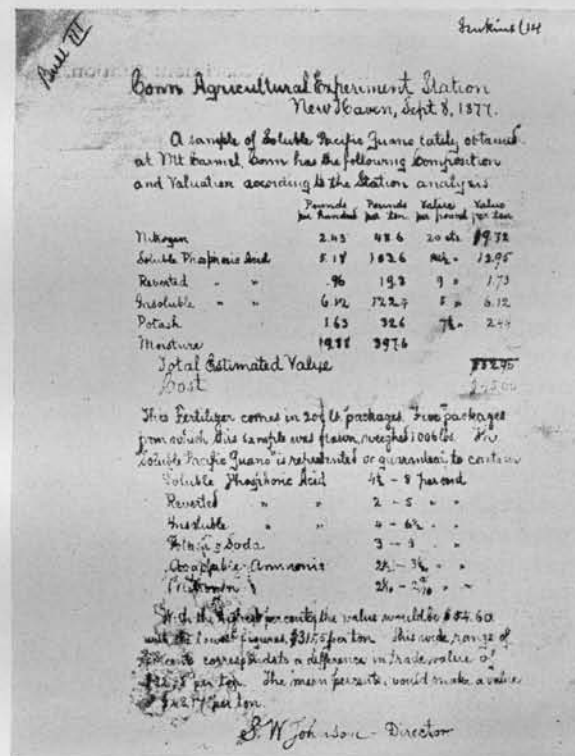 Bull III
Jenkins
Conn Agricultural Experiment Station
New Haven, Sept 8, 1877.
A sample of Soluble Pacific Guano lately obtained
at Mt Carmel, Conn has the following Composition
and Valuation according to the Station analysis
Pounds Pounds Value Value
per hundred per ton per pound per ton
Nitrogen 2.43 48.6 20 cts
Soluble Phosphoric Acid 5.18 12.95
Reverted " " .96 9 " 1.73
Insoluble " " 6.12 5 " 6.12
Potash 1.63 32.6 2.44
Moisture 397.6
Total Estimated Value
Cost
This Fertilizer comes in 200 lb packages. Five packages
from which this sample was drawn, weighed 1006 lbs. The
"Soluble Pacific Guano" is represented or guaranteed to contain
Soluble Phosphoric Acid - 8 per cend
Reverted " " 2 - 5 " "
Insoluble " " 4 - 6½ " "
Potash & Soda 3 - " "
Ammonia " "
Nitrogen " "
With the highest per cents the value would be $54.60
with the lowest figures, per ton This wide range of
per cents corresponds to a difference in trade value of
per ton. The mean per cents, would make a value
per ton.
S. W Johnson - Director